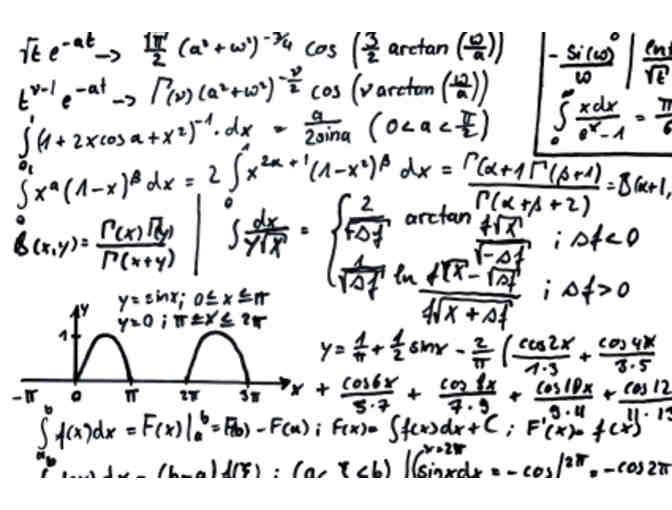 √t e^-at → √π/2 (a² + ω²)^-3/4 cos (3/2 arctan (ω/a))
t^ν-1 e^-at → Γ(ν) (a² + ω²)^-ν/2 cos (ν arctan (ω/a))
- Si(ω)/ω
∫₀^∞ xdx/e^x - 1 = π
∫₀^1 (1 + 2xcos a + x²)^-1 · dx = a/2sina (0 < a < π/2)
∫₀^1 x^a (1 - x)^β dx = 2 ∫₀^1 x^2α+1 (1 - x²)^β dx = Γ(α+1 Γ(β+1)/Γ(α+β+2) = B(α+1,
B(x,y) = Γ(x) Γ(y)/Γ(x+y)
∫ dx/y√x = { 2/√-Δf arctan f√x/√-Δf ; Δf < 0
1/√Δf ln f√x - √Δf/f√x + Δf ; Δf > 0
y
y = sinx; 0 ≤ x ≤ π
y = 0 ; π ≤ x ≤ 2π
1
-π 0 π 2π 3π x
y = 1/π + 1/2 sinx - 2/π (cos2x/1·3 + cos4x/3·5
+ cos6x/5·7 + cos8x/7·9 + cos10x/9·11 + cos12/11·13
∫ₐ^b f(x)dx = F(x)|ₐ^b = F(b) - F(a) ; F(x) = ∫f(x)dx + C ; F'(x) = f(x)
dx = (b-a) f(ξ) ; (a < ξ < b) | ∫ sinxdx = -cos|^2π = -cos2π